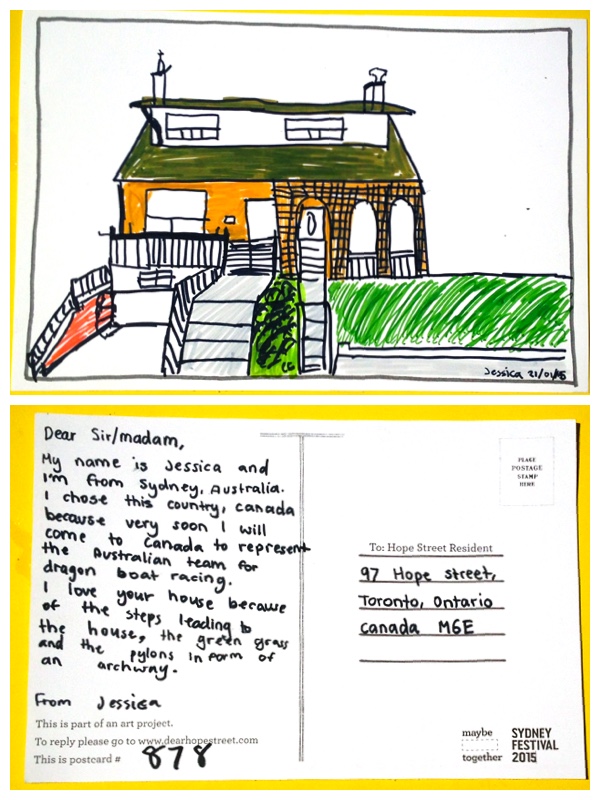 Jessica 21/01/15
Dear Sir/madam,
My name is Jessica and
I'm from Sydney, Australia.
I chose this country, canada
because very soon I will
come to Canada to represent
the Australian team for
dragon boat racing.
I love your house because
of the steps leading to
the house, the green grass
and the pylons in form of
an archway.
From Jessica
This is part of an art project.
To reply please go to www.dearhopestreet.com
This is postcard # 878
PLACE
POSTAGE
STAMP
HERE
To: Hope Street Resident
97 Hope street,
Toronto, Ontario
Canada M6E
maybe
together
SYDNEY
FESTIVAL
2015